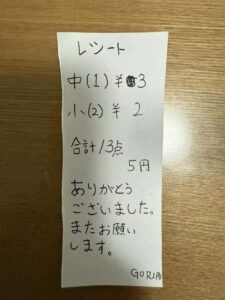 レシート
中(1) ¥ 3
小(2) ¥ 2
合計/3点
5円
ありがとう
ございました。
またお願い
します。